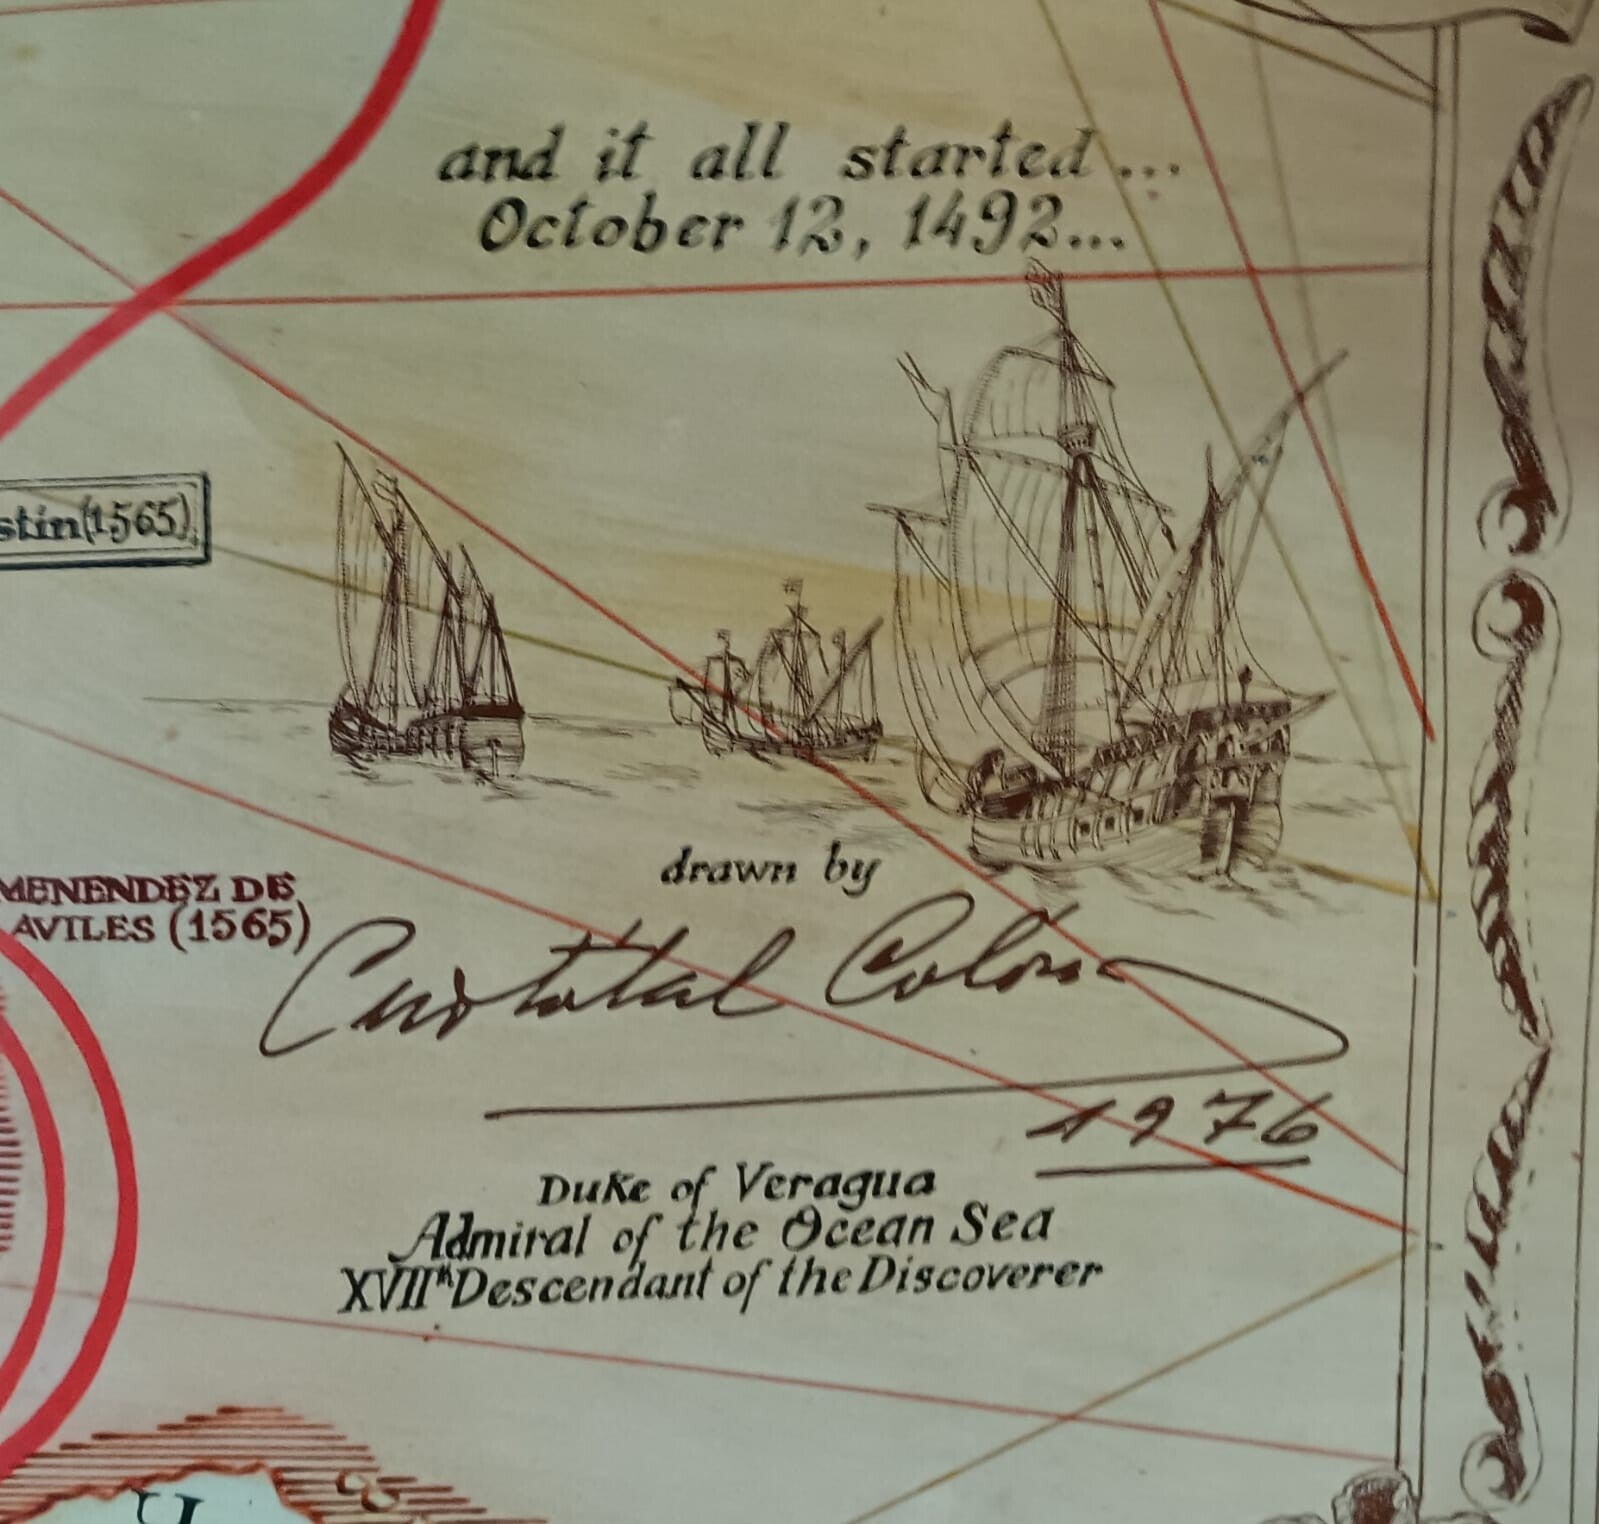 and it all started...
October 12, 1492...
stin(1565)
MENENDEZ DE
AVILES (1565)
drawn by
Cristobal Colon
1976
Duke of Veragua
Admiral of the Ocean Sea
XVIIth Descendant of the Discoverer